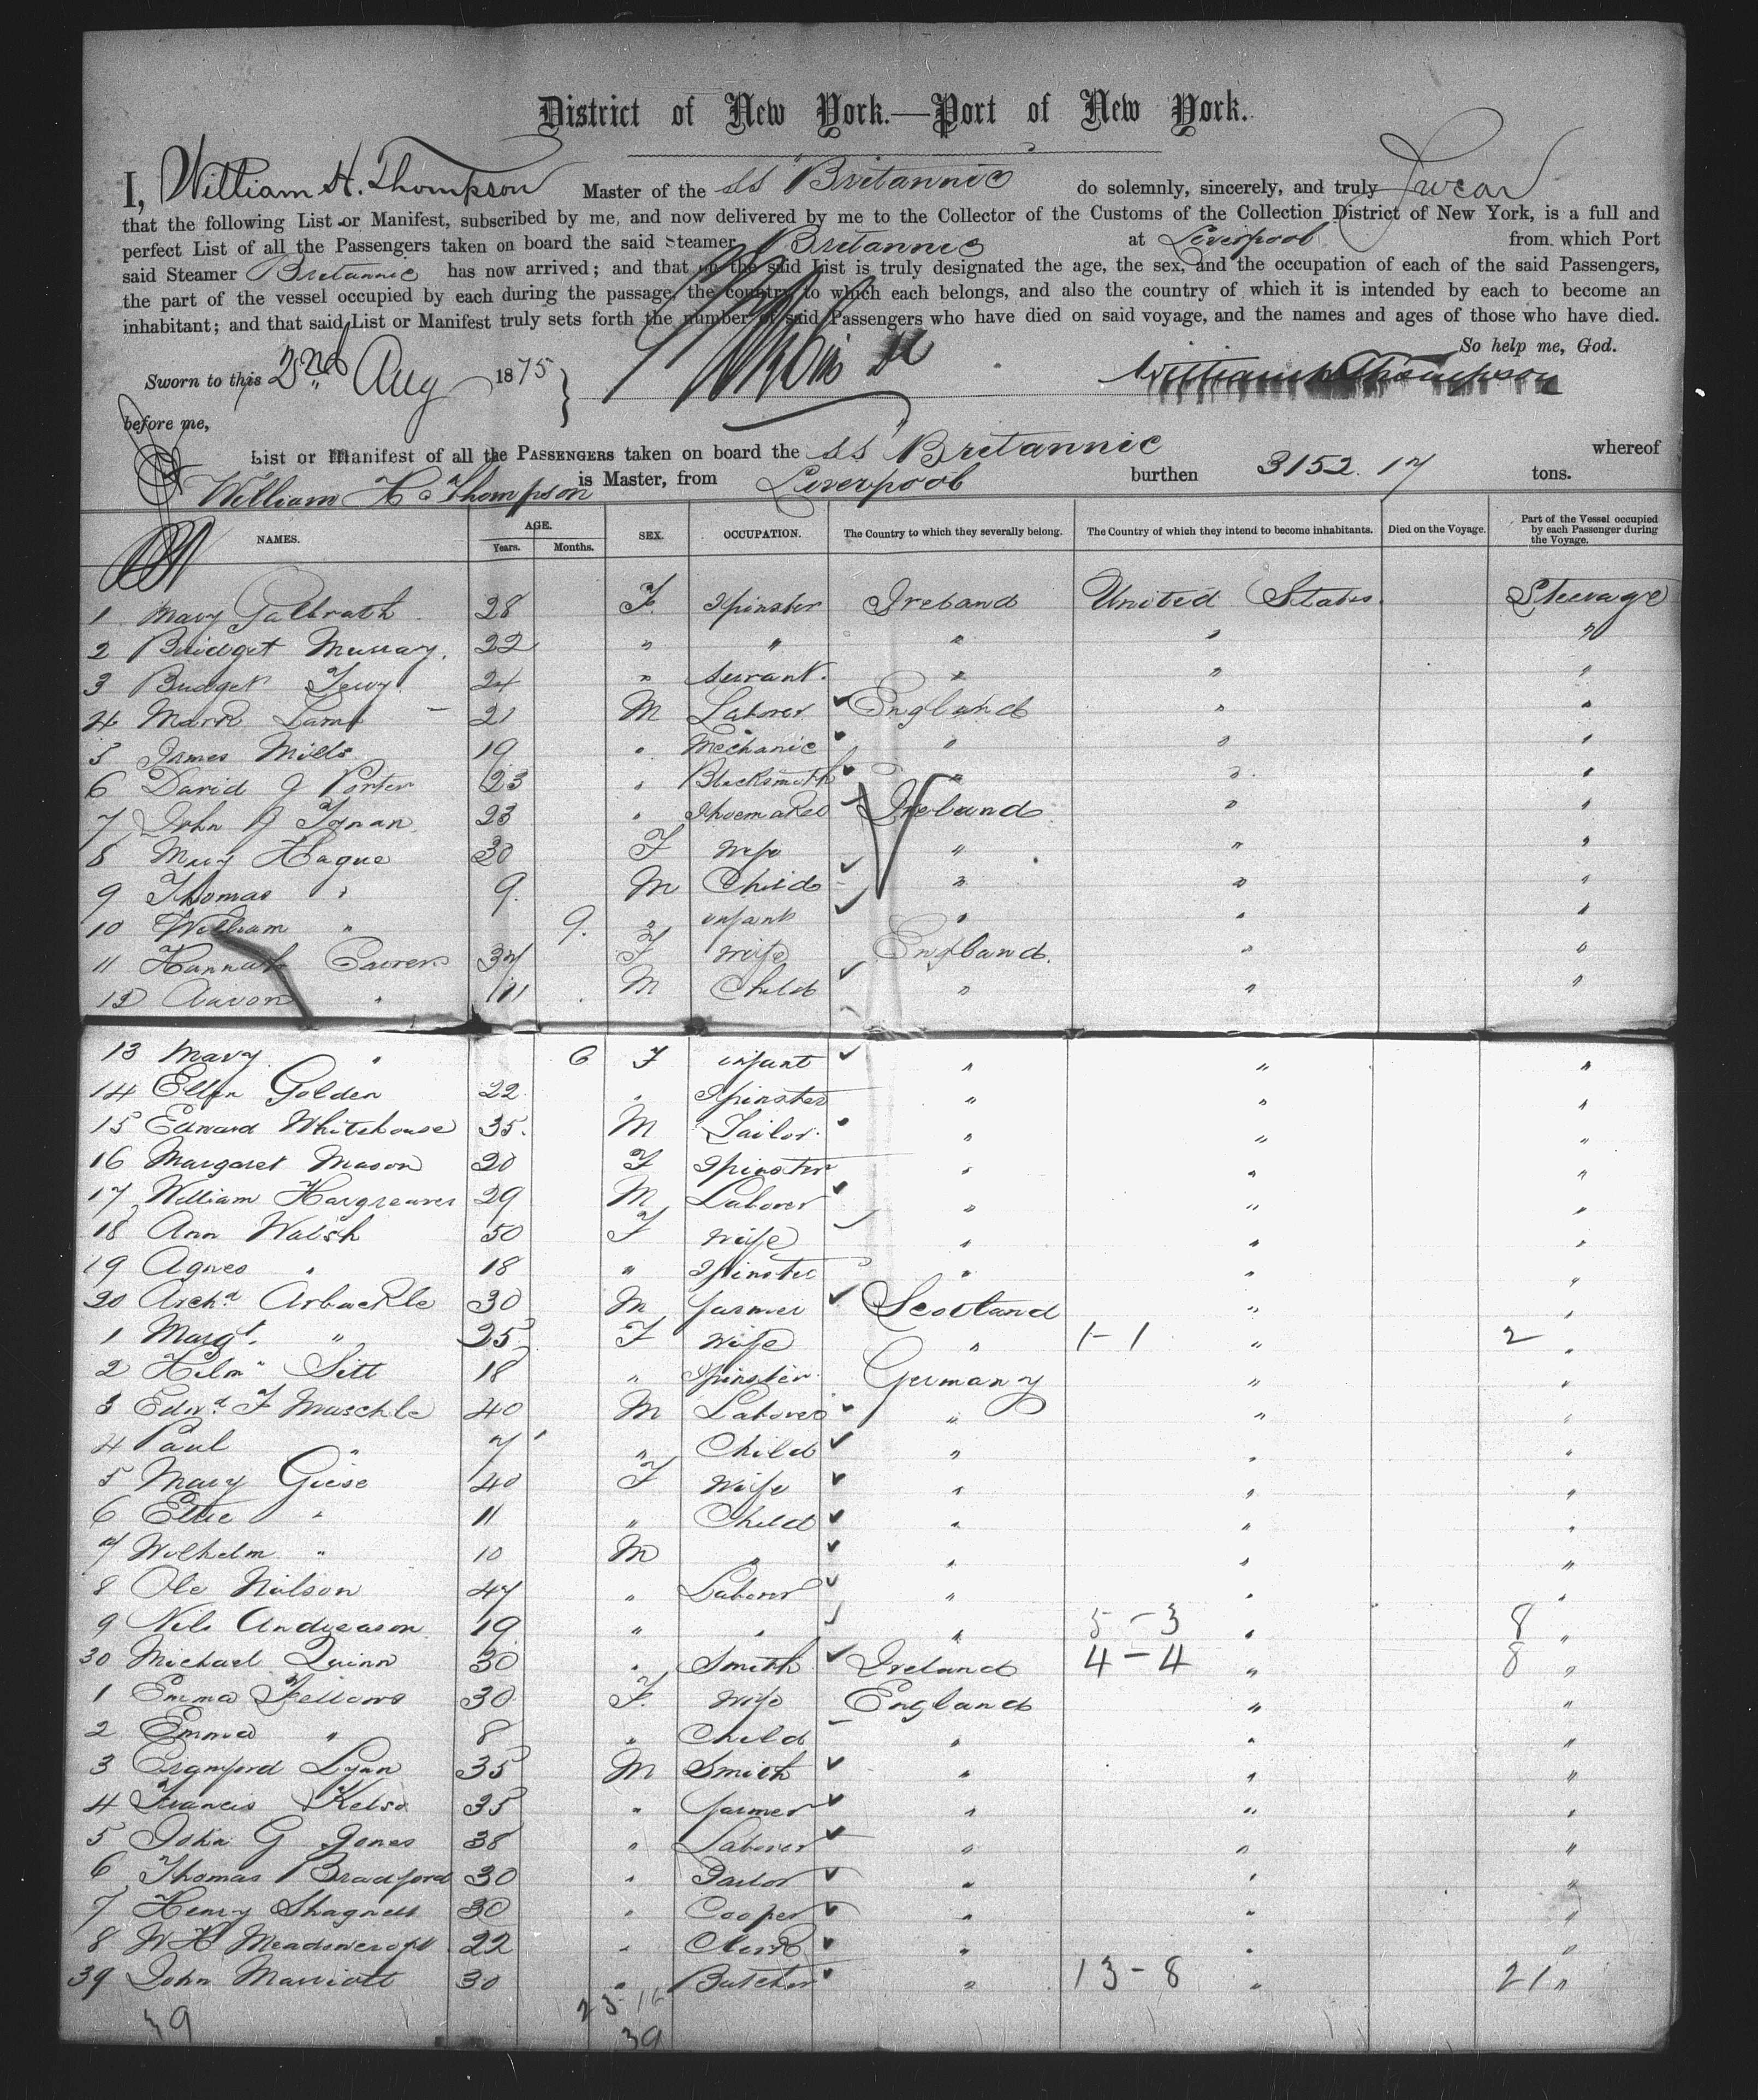 District of New York.—Port of New York.
I, William H. Thompson Master of the SS Britannic do solemnly, sincerely, and truly Swear
that the following List or Manifest, subscribed by me, and now delivered by me to the Collector of the Customs of the Collection District of New York, is a full and
perfect List of all the Passengers taken on board the said Steamer Britannic at Liverpool from which Port
said Steamer Britannic has now arrived; and that on the said List is truly designated the age, the sex, and the occupation of each of the said Passengers,
the part of the vessel occupied by each during the passage, the country to which each belongs, and also the country of which it is intended by each to become an
inhabitant; and that said List or Manifest truly sets forth the number of said Passengers who have died on said voyage, and the names and ages of those who have died.
So help me, God.
Sworn to this 2nd Aug 1875 } William H Thompson
before me,
List or Manifest of all the PASSENGERS taken on board the SS Britannic whereof
William H. Thompson is Master, from Liverpool burthen 3152.17 tons.
NAMES. AGE. Years. Months. SEX. OCCUPATION. The Country to which they severally belong. The Country of which they intend to become inhabitants. Died on the Voyage. Part of the Vessel occupied by each Passenger during the Voyage.
1 Mary Galbrath 28 F. Spinster Ireland United States. Steerage
2 Bridget Murray. 22 " " " " "
3 Bridget 24 " Servant. " " "
4 Mark Lamb 21 M Laborer England " "
5 James Mills 19 " Mechanic " " "
6 David J Porter 23 " Blacksmith " " "
7 John J Tynan 23 " Shoemaker Ireland " "
8 Mary Hague 30 F Wife " " "
9 Thomas " 9. M Child " " "
10 William " 9. " infant " " "
11 Hannah 37 F Wife England. " "
12 Aaron " 11 M Child " " "
13 Mary " 6 F infant " " "
14 Ellen Golden 22 " Spinster " " "
15 Edward Whitehouse 35. M Tailor " " "
16 Margaret Mason 20 F Spinster " " "
17 William Hargreaves 29 M Laborer " " "
18 Ann Walsh 50 F Wife " " "
19 Agnes " 18 " Spinster " " "
20 Archd Arbuckle 30 M farmer Scotland " "
1 Margt. " 25 F Wife " 1-1 " 2 "
2 Hilm" Sitt 18 " Spinster Germany " "
3 Edwd F Muschle 40 M Laborer " " "
4 Paul " 7 " Child " " "
5 Mary Giese 40 F Wife " " "
6 Ettie " 11 " Child " " "
7 Wilhelm " 10 M " " " "
8 Ole Nilson 47 " Laborer " " "
9 Nils Andreason 19 " " " 5-3 " 8 "
30 Michael Quinn 30 " Smith Ireland 4-4 " 8 "
1 Emma Fellows 30 F. Wife England " "
2 Emma " 8 " Child " " "
3 Lynn 35 M Smith " " "
4 Francis Kelso 35 " farmer " " "
5 John G Jones 38 " Laborer " " "
6 Thomas Bradford 30 " Tailor " " "
7 Henry Shagnell 30 " Cooper " " "
8 W H Meadowcroft 22 " Clerk " " "
39 John Marriott 30 " Butcher " 13-8 " 21 "
39 23-16
39